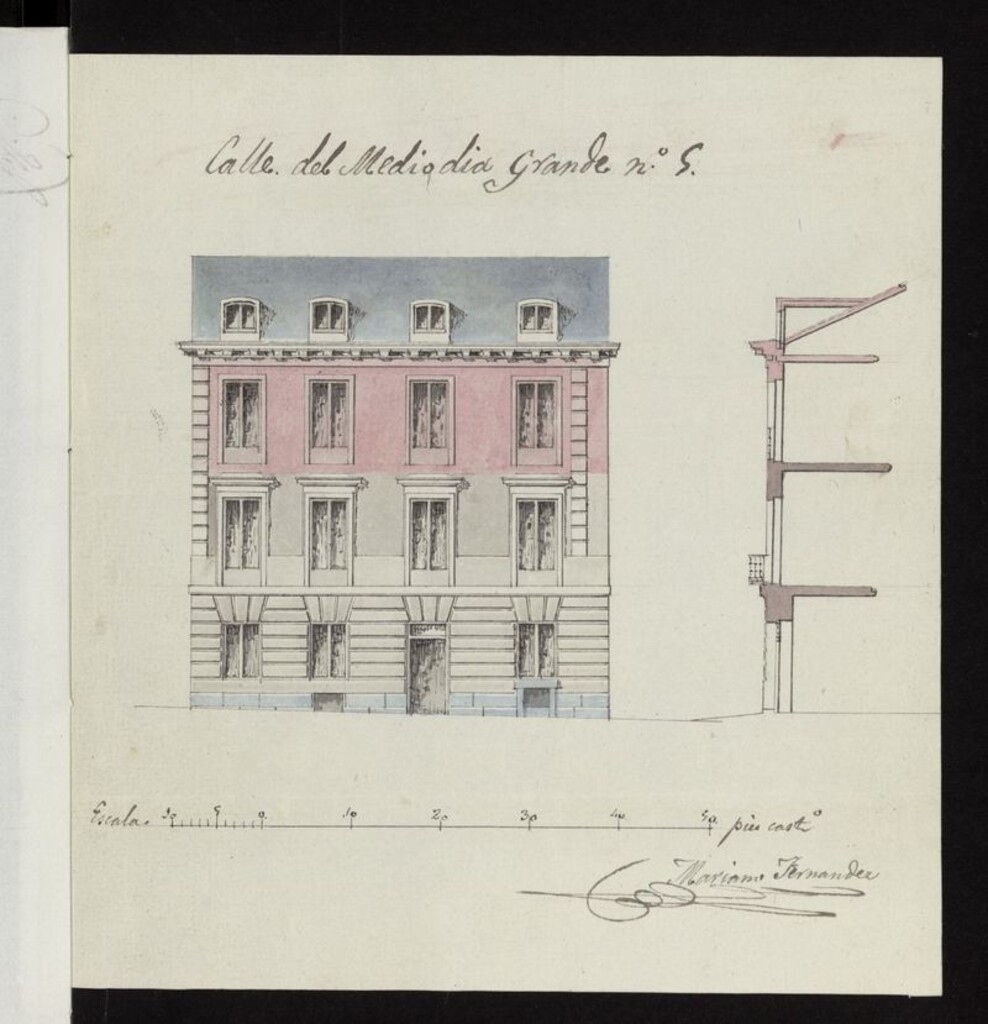 Calle. del Mediodia Grande n.º 5.
Escala. 10 5 0. 10 20 30 40 50. pies cast.º
Mariano Fernandez